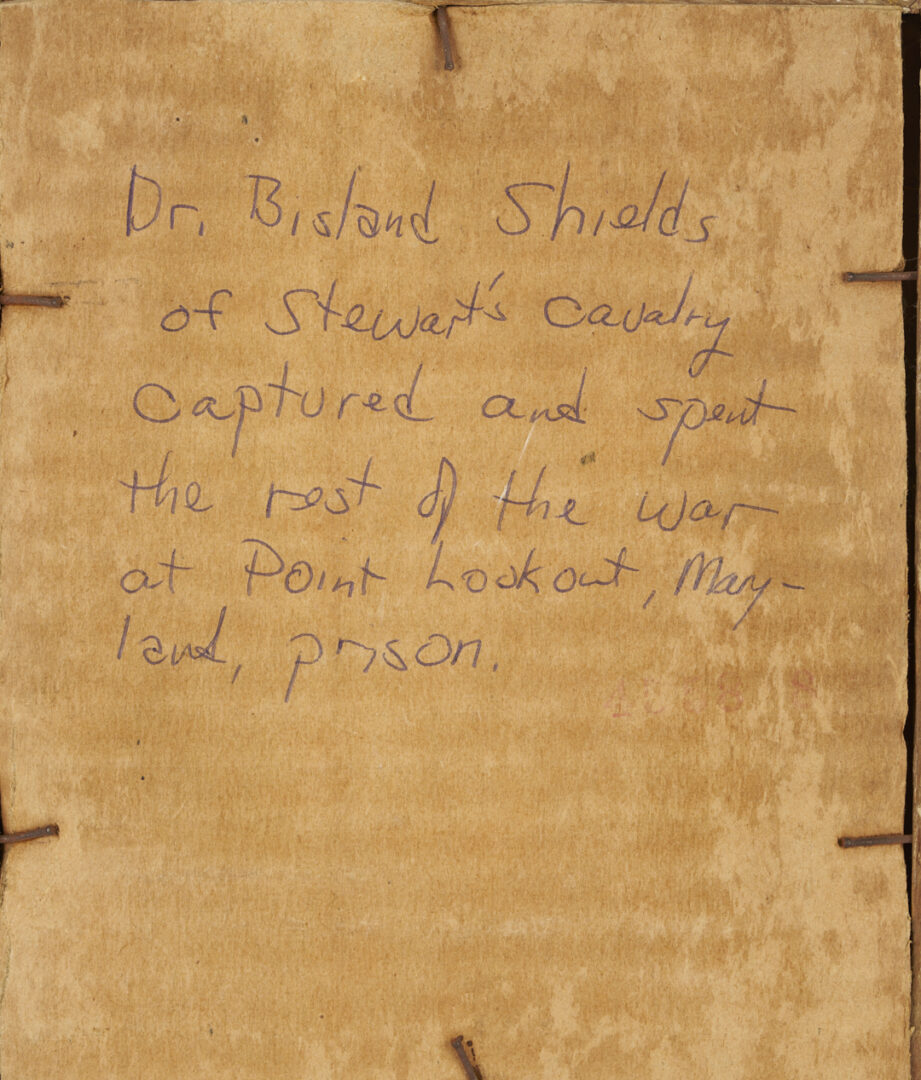 Dr. Bisland Shields
of Stewart's cavalry
captured and spent
the rest of the war
at Point Lookout, Mary-
land, prison.